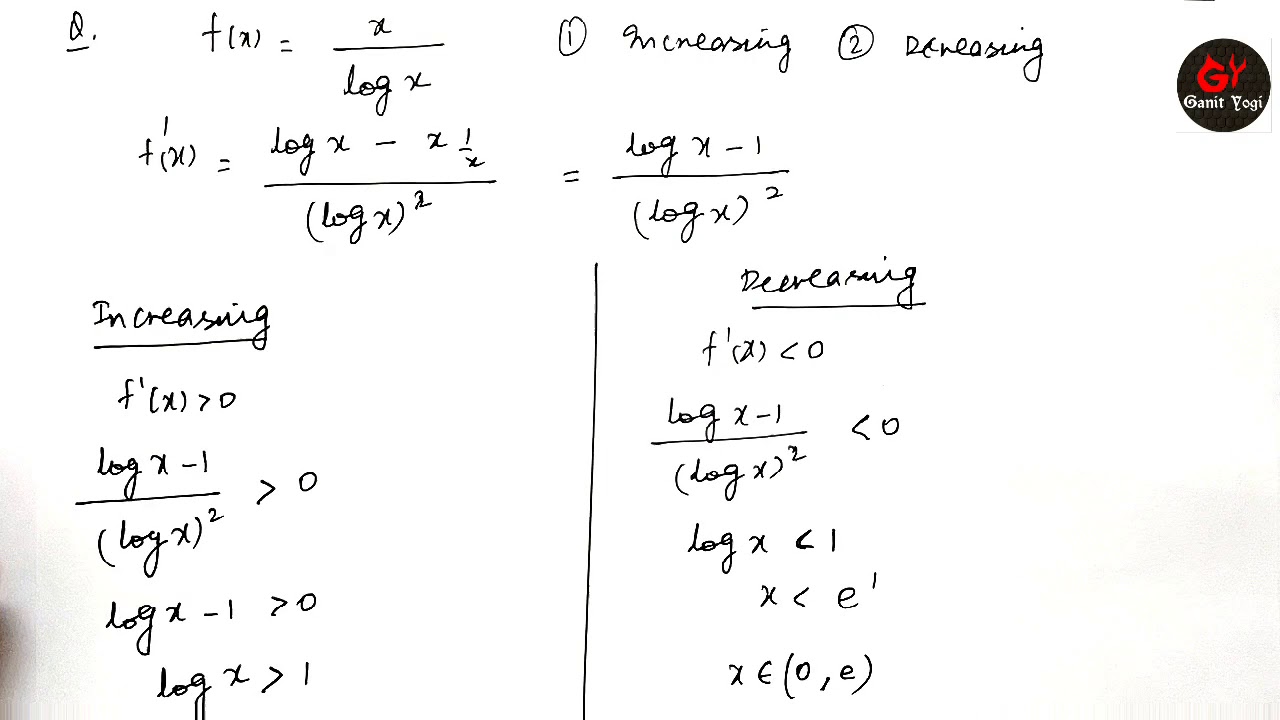 Q. f(x) = x / log x ① Increasing ② Decreasing
GY
Ganit Yogi
f'(x) = (log x - x 1/x) / (log x)² = (log x - 1) / (log x)²
Increasing
f'(x) > 0
(log x - 1) / (log x)² > 0
log x - 1 > 0
log x > 1
Decreasing
f'(x) < 0
(log x - 1) / (log x)² < 0
log x < 1
x < e¹
x ∈ (0, e)